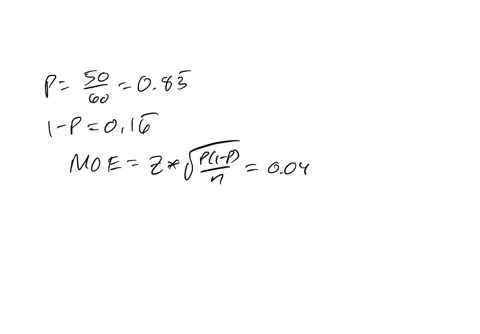 P = 50/60 = 0.83̅
1-P = 0.16̅
MOE = Z* √(P(1-P)/n) = 0.04